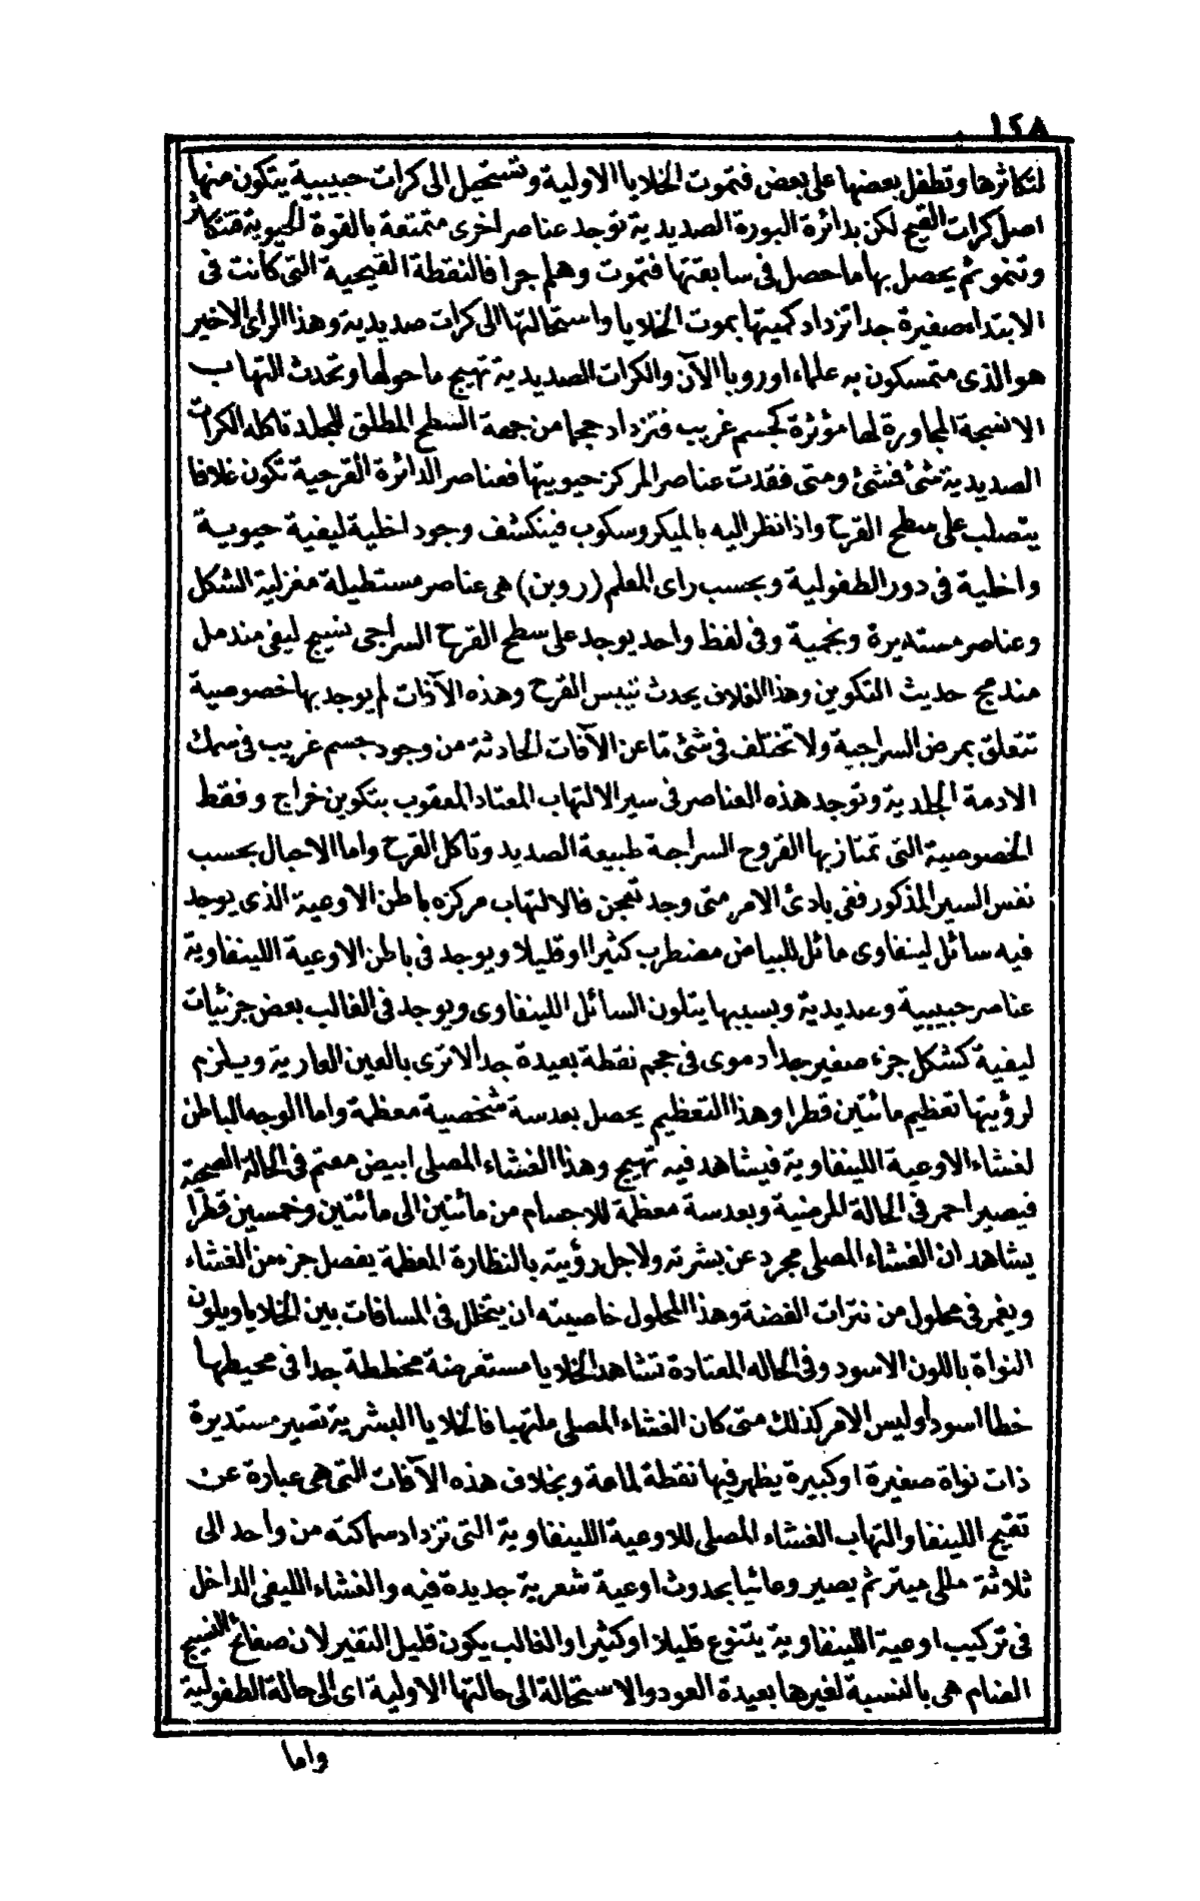 ١٤٨
لتكاثرها وتطفل بعضها على بعض فتموت الخلايا الاولية وتستحيل الى كرات حبيبية يتكون منها
اصل كرات القيح لكن بدائرة البورة الصديدية توجد عناصر اخرى متمتعة بالقوة الحيوية فتتكاثر
وتنمو ثم يحصل بها ما حصل فى سابقتها فتموت وهلم جرا فالنقطة القيحية التى كانت فى
الابتداء صغيرة جدا تزداد كميتها بموت الخلايا واستحالتها الى كرات صديدية وهذا الراى الاخير
هو الذى متمسكون به علماء اوروبا الآن والكرات الصديدية تهيج ما حولها وتحدث التهاب
الانسجة المجاورة لها مؤثرة كجسم غريب فتزداد حجما من جهة السطح المطلق للجلد تاكله الكرات
الصديدية شئ فشئ ومتى فقدت عناصر المركز حيويتها فعناصر الدائرة القرحية تكون غلافا
يتصلب على سطح القرح واذا نظر اليه بالميكروسكوب فينكشف وجود اخلية ليفية حيوبية
واخلية فى دور الطفولية وبحسب راى المعلم (روبن) هى عناصر مستطيلة مغزلية الشكل
وعناصر مستديرة ونجمية وفى لفظ واحد يوجد على سطح القرح السراجى نسيج ليفى مندمل
مندمج حديث التكوين وهذا الغلاف يحدث تيبس القرح وهذه الآفات لم يوجد بها خصوصية
تتعلق بمرض السراجية ولا تختلف فى شئ ما عن الآفات الحادثة من وجود جسم غريب فى سمك
الادمة الجلدية وتوجد هذه العناصر فى سير الالتهاب المعتاد المعقوب بتكوين خراج وفقط
الخصوصية التى تمتاز بها القروح السراجة طبيعة الصديد وتاكل القرح واما الاحبال بحسب
نفس السير المذكور ففى بادئ الامر متى وجد تعجن فالالتهاب مركزه باطن الاوعية الذى يوجد
فيه سائل لينفاوى مائل للبياض مضطرب كثيرا او قليلا ويوجد فى باطن الاوعية اللينفاوية
عناصر حبيبية وصديدية وبسببها يتلون السائل اللينفاوى ويوجد فى الغالب بعض جزئيات
ليفية كشكل جزء صغير جدا دموى فى حجم نقطة بعيدة جدا لا ترى بالعين العارية ويلزم
لرؤيتها تعظيم مائتين قطرا وهذا التعظيم يحصل بعدسة شخصية معظمة واما الوجه الباطن
لغشاء الاوعية اللينفاوية فيشاهد فيه تهيج وهذا الغشاء المصلى ابيض معتم فى الحالة الصحية
فيصير احمر فى الحالة المرضية وبعدسة معظمة للاجسام من مائتين الى مائتين وخمسين قطرا
يشاهد ان الغشاء المصلى مجرد عن بشرته ولاجل رؤيته بالنظارة المعظمة يفصل جزء من الغشاء
ويغمر فى محلول من نترات الفضة وهذا المحلول خاصيته ان يتخلل فى المسافات بين الخلايا ويلون
النواة باللون الاسود وفى الحاله المعتادة تشاهد الخلايا مستعرضة مخططة جدا فى محيطها
خطا اسودا وليس الامر كذلك متى كان الغشاء المصلى ملتهبا فالخلايا البشرية تصير مستديرة
ذات نواة صغيرة او كبيرة يظهر فيها نقطة لماعة وبخلاف هذه الآفات التى هى عبارة عن
تقيح اللينفا والتهاب الغشاء المصلى للاوعية اللينفاوية التى تزداد سماكته من واحد الى
ثلاثة مللى ميتر ثم يصير وعائيا بحدوث اوعية شعرية جديدة فيه والغشاء الليفى الداخل
فى تركيب اوعية اللينفاوية يتنوع قليلا او كثيرا والغالب يكون قليل التغير لان صفائح النسيج
الضام هى بالنسبة لغيرها بعيدة العود والاستحالة الى حالتها الاولية اى الى حالة الطفولية
واما